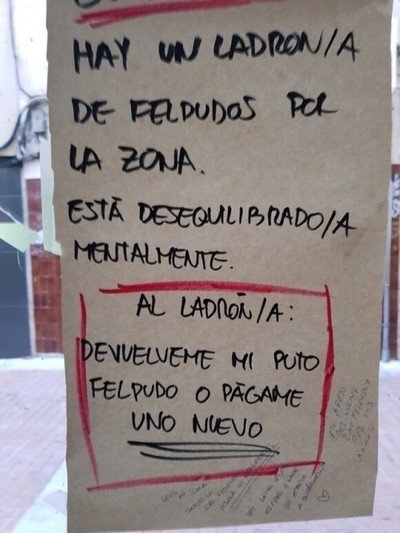 HAY UN LADRON/A
DE FELPUDOS POR
LA ZONA.
ESTÁ DESEQUILIBRADO/A
MENTALMENTE.
AL LADRÓN/A:
DEVUELVEME MI PUTO
FELPUDO O PÁGAME
UNO NUEVO